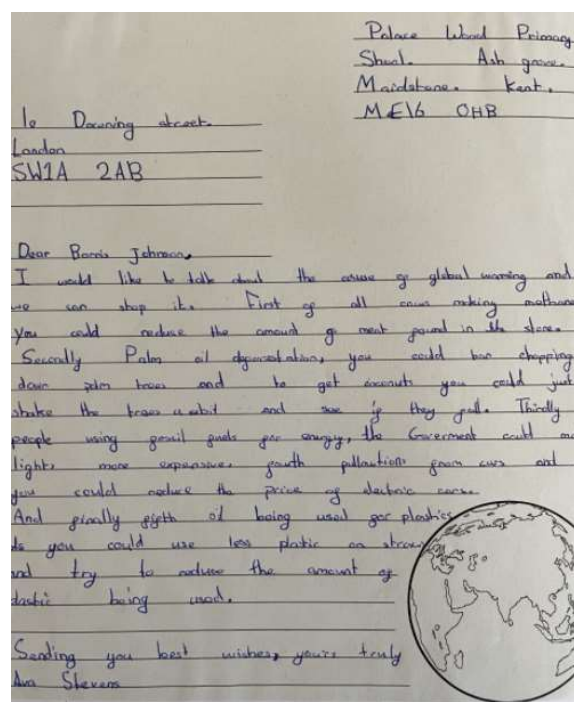 Palace Wood Primary
Shool. Ash grove.
Maidstone. Kent.
ME16 0HB
10 Downing street.
London
SW1A 2AB
Dear Borris Johnson,
I would like to talk about the cause of global warming and
we can stop it. First of all cows making methane
You could reduce the amount of meat found in the store.
Seconally Palm oil deforestation, you could ban chopping
down palm trees and to get coconuts you could just
shake the trees a bit and see if they fall. Thirdly
people using fossil fuels for energy, the Goverment could
lights more expensive. fourth pollaution from cars and
you could reduce the price of electric cars.
And finally fifth oil being used for plastics
you could use less plastic on straws
and try to reduce the amount of
plastic being used.
Sending you best wishes, yours truly
Ava Stevens